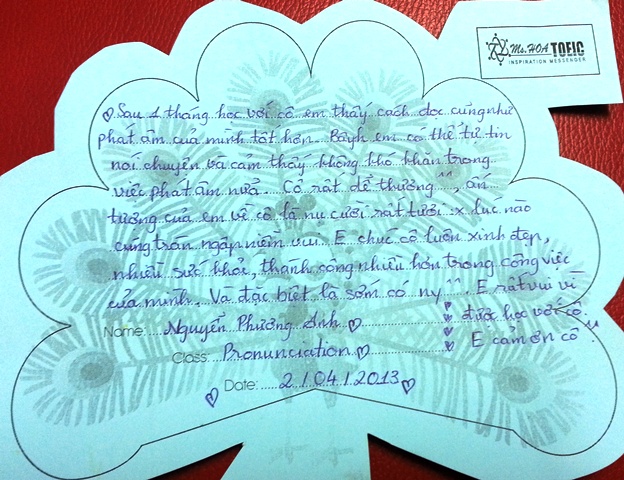 Ms. HOA TOEIC
INSPIRATION MESSENGER
♡ Sau 1 tháng học với cô em thấy cách đọc cũng như
phát âm của mình tốt hơn. Bâyh em có thể tự tin
nói chuyện và cảm thấy không khó khăn trong
việc phát âm nữa. Cô rất dễ thương ^^, ấn
tượng của em về cô là nụ cười rất tươi :x lúc nào
cũng tràn ngập niềm vui. E chúc cô luôn xinh đẹp,
nhiều sức khỏe, thành công nhiều hơn trong công việc
của mình. Và đặc biệt là sớm có ny ^^. E rất vui vì
♡ được học với cô.
♡ E cảm ơn cô ^^
Name: Nguyễn Phương Anh ♡
Class: Pronunciation ♡
Date: 2/04/2013 ♡